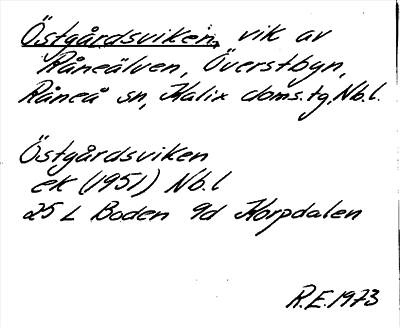 Östgårdsviken, vik av
Råneälven, Överstbyn,
Råneå sn, Kalix doms.tg, Nb.l.
Östgårdsviken
ek (1951) Nb.l
25 L Boden 9d Korpdalen
R.E. 1973